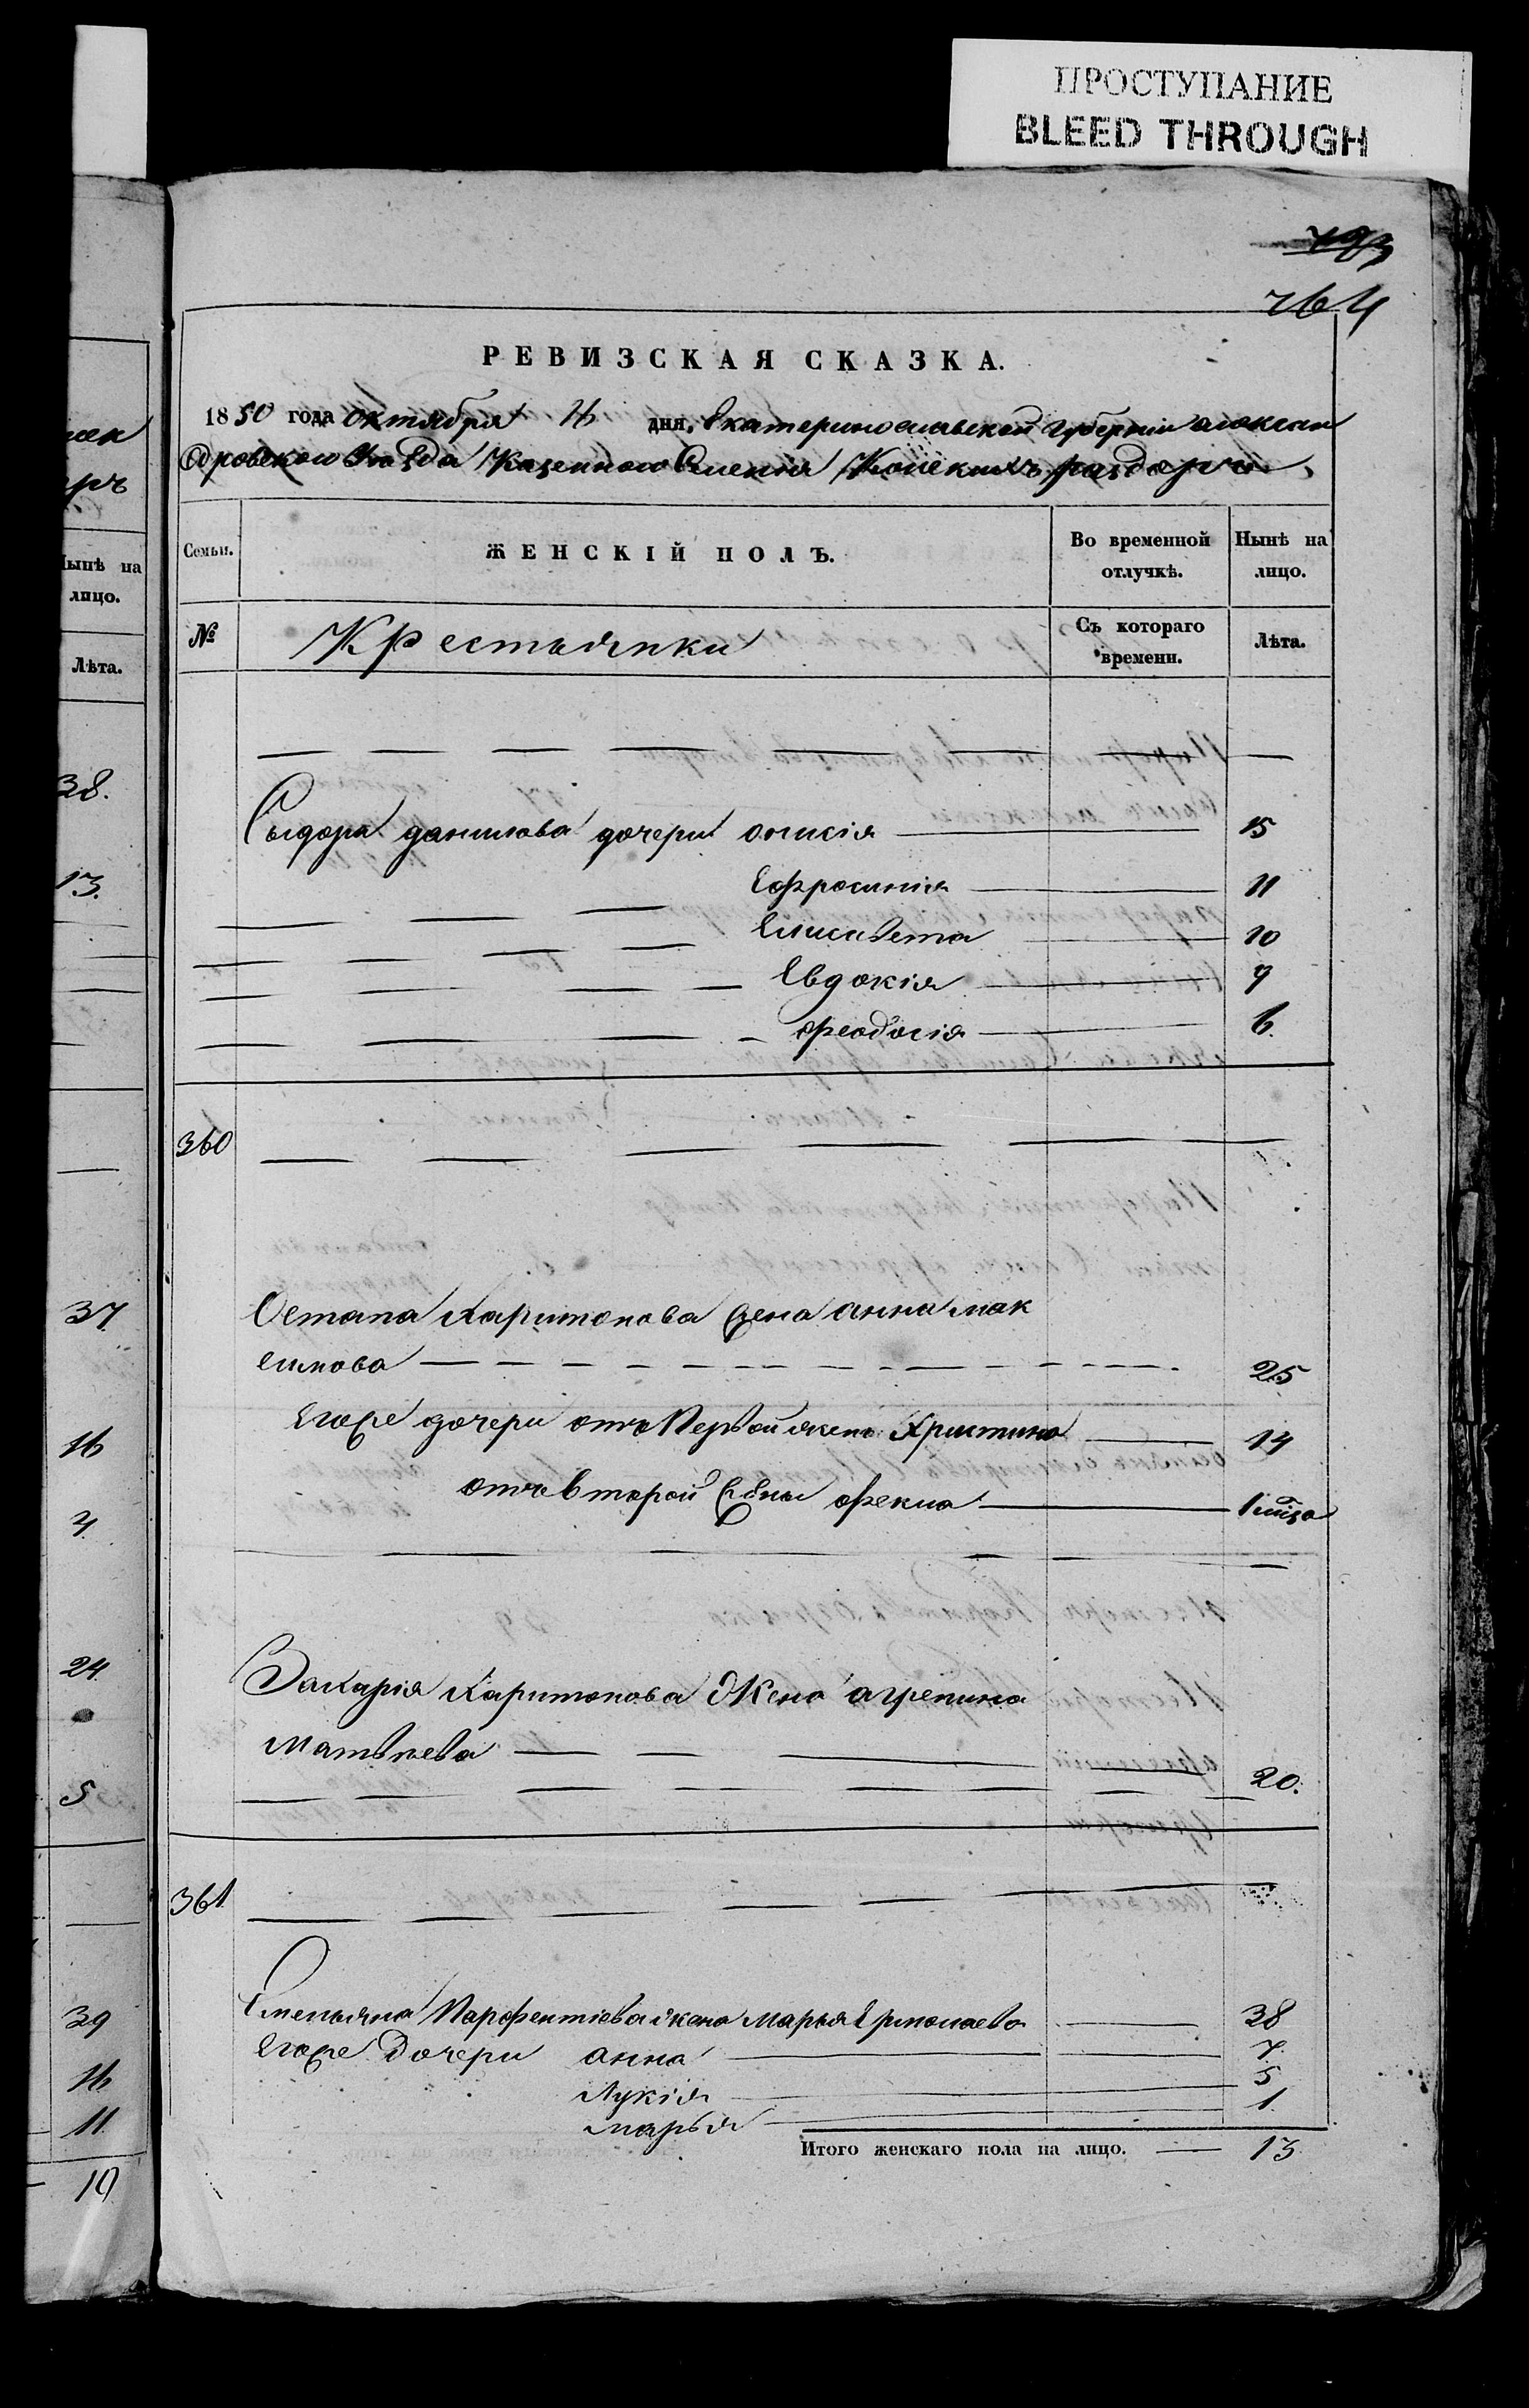 ПРОСТУПАНИЕ
BLEED THROUGH
793
764
РЕВИЗСКАЯ СКАЗКА.
1850 года октября 16 дня, Екатеринославской губернии алексан
дровского Уезда Казенного Селения Конскихъ раздоръ
Семьи. ЖЕНСКІЙ ПОЛЪ. Во временной отлучкѣ. Нынѣ на лицо.
№ Крестьянки Съ котораго времени. Лѣта.
Сыдора данилова дочери онисія 15
Ефросинія 11
Елисавета 10
Евдокія 7
феодосія 6
360
Остапа Харитонова жена анна мак
симова 25
Егоже дочери отъ Первой жены Христина 14
отъ второй жены фекла 1 мца
Захарія Харитонова Жена агрепина
Матвѣева 20.
361
Емельяна Парфентіева жена Марья Ермолаева 38
Егоже Дочери анна 7
Лукія 5
марья 1
Итого женскаго пола на лицо. 13
Нынѣ на
лицо.
Лѣта.
38.
13.
37
16
4
24
5
39
16
11
10